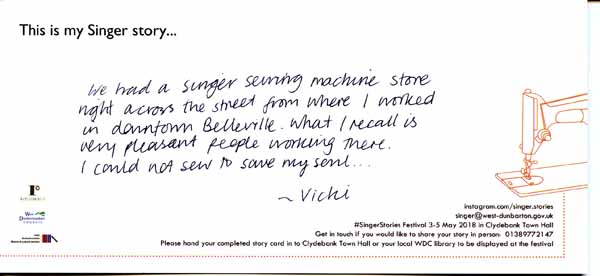 This is my Singer story...
We had a singer sewing machine store
right across the street from where I worked
in downtown Belleville. What I recall is
very pleasant people working there.
I could not sew to save my soul...
~ Vicki
instagram.com/singer.stories
singer@west-dunbarton.gov.uk
#SingerStories Festival 3-5 May 2018 in Clydebank Town Hall
Get in touch if you would like to share your story in person: 01389772147
Please hand your completed story card in to Clydebank Town Hall or your local WDC library to be displayed at the festival